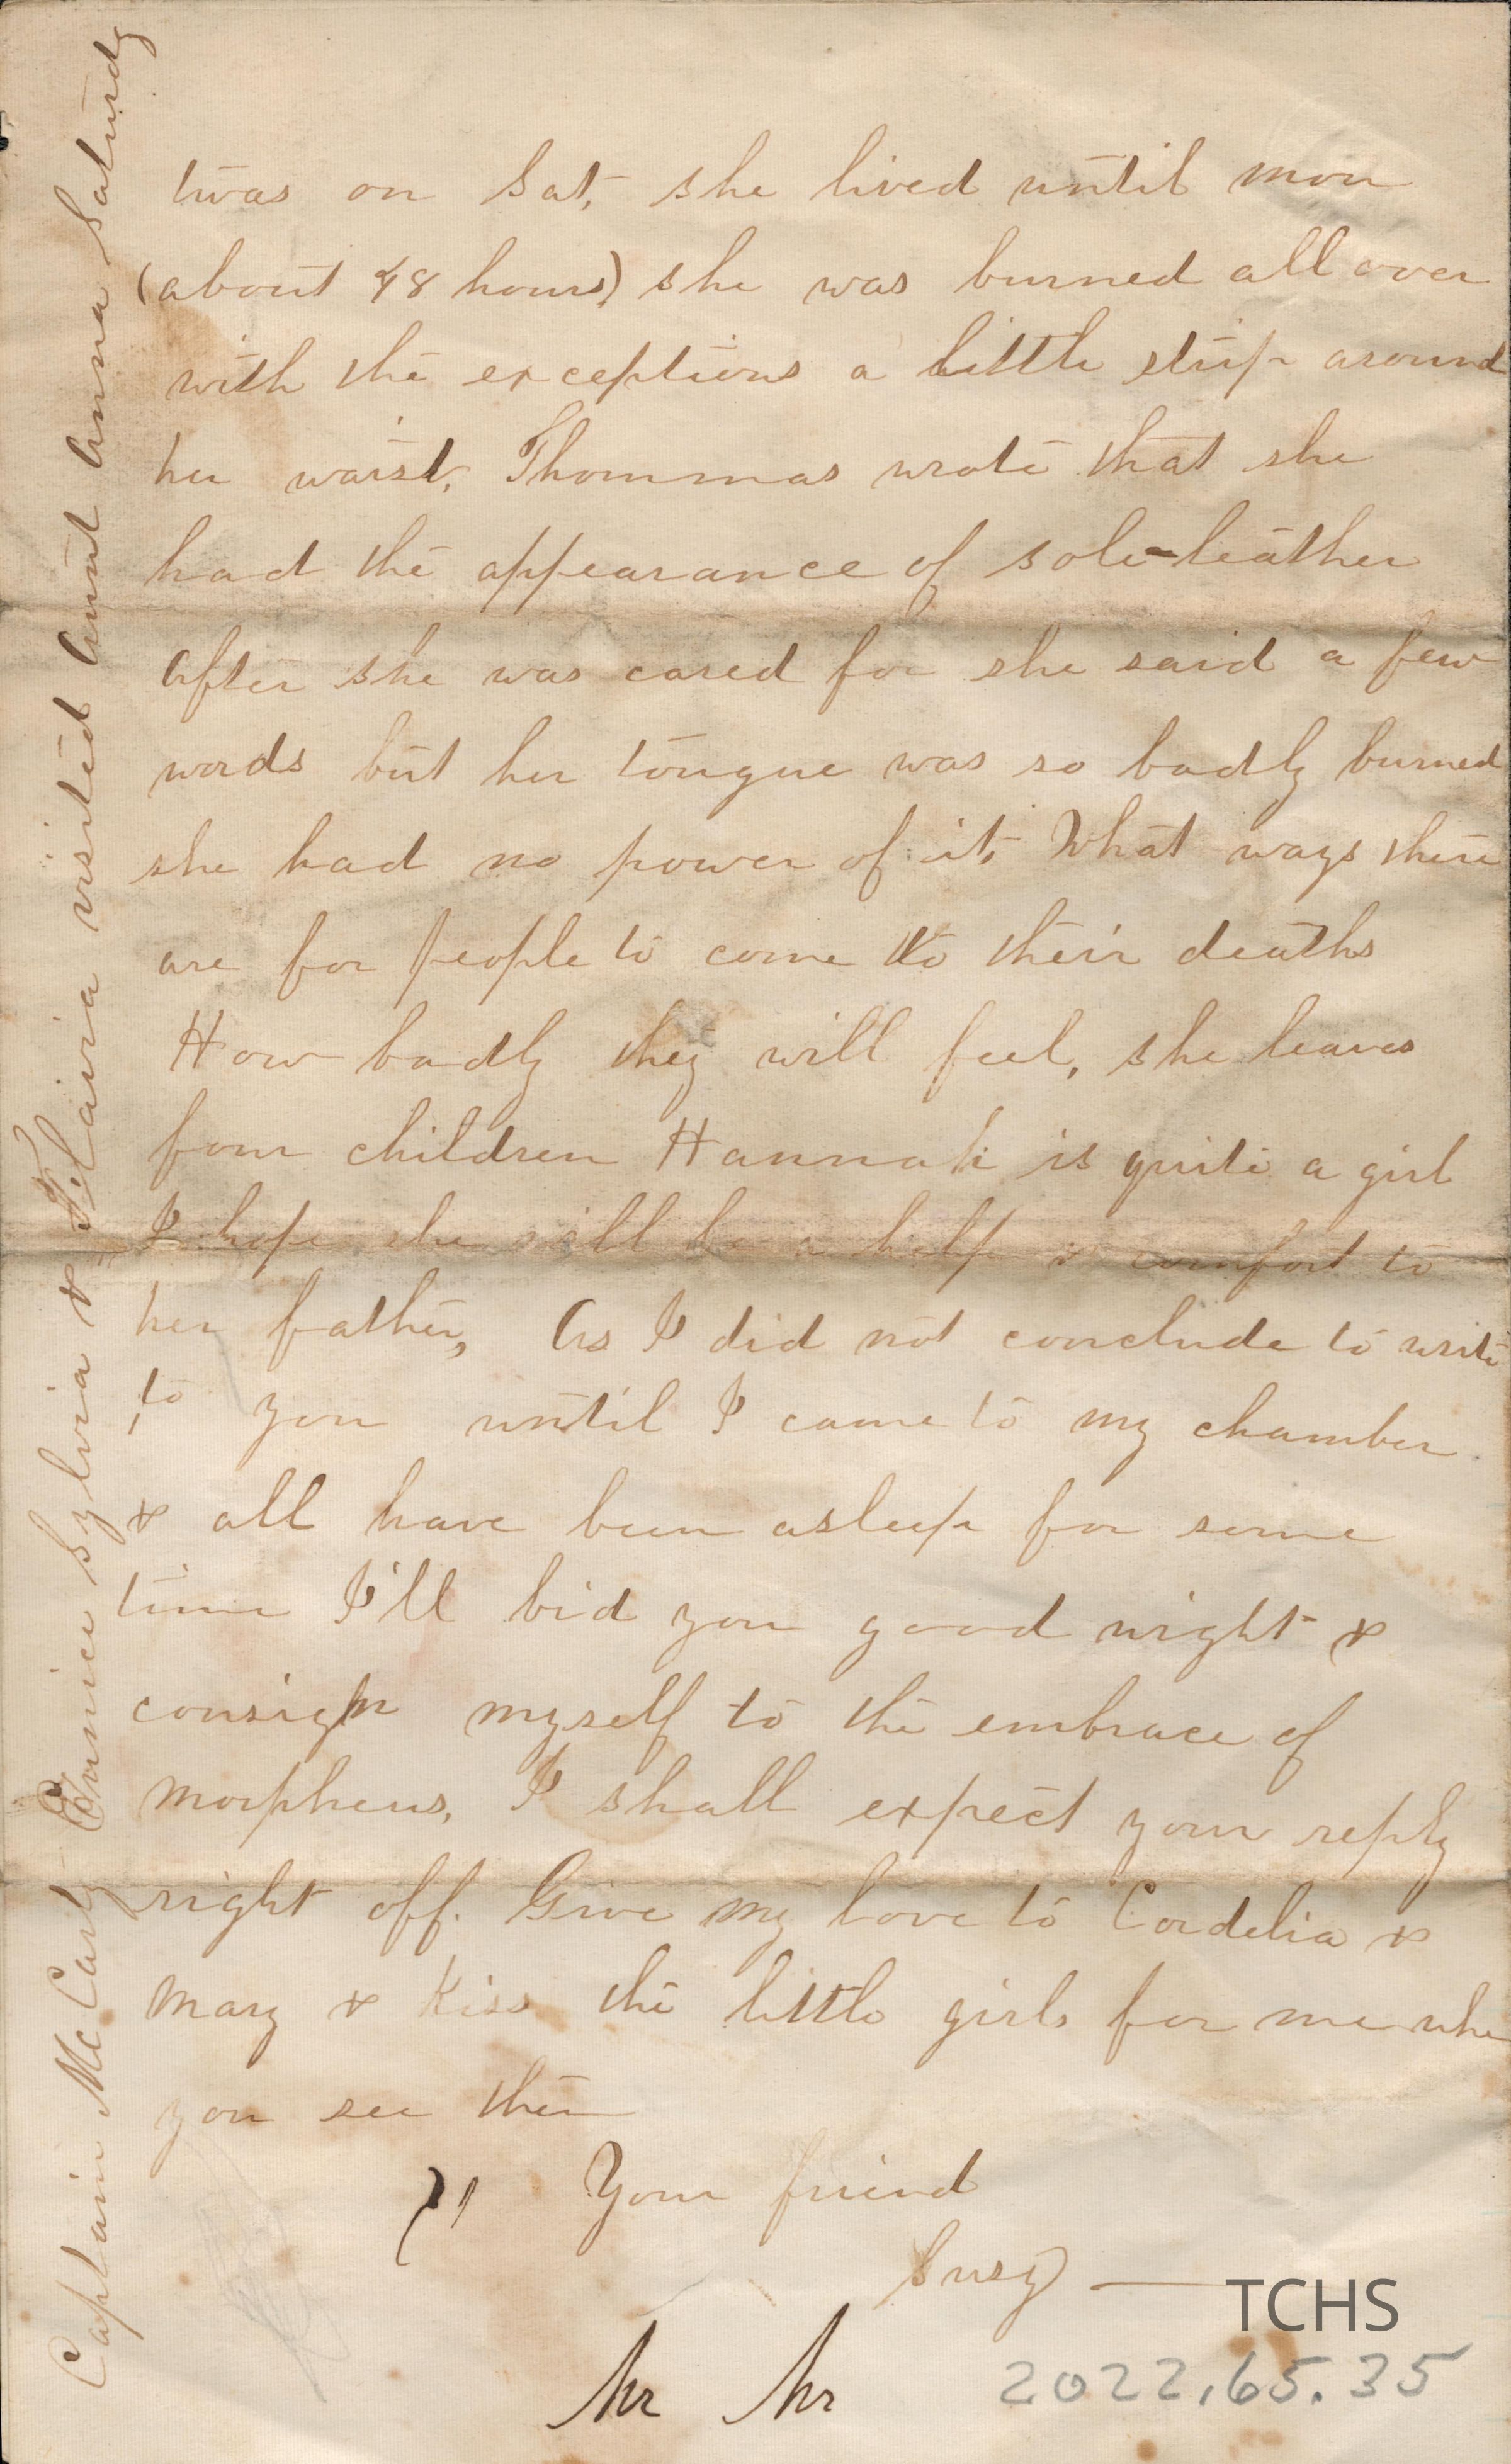 twas on Sat, she lived until mon
(about 48 hours) she was burned all over
with the exceptions a little strip around
her waist, Thommas wrote that she
had the appearance of sole-leather
after she was cared for she said a few
words but her tongue was so badly burned
she had no power of it, What ways there
are for people to come to their deaths
How badly they will feel, she leaves
four children Hannah is quite a girl
I hope she will be a help & comfort to
her father, As I did not conclude to write
to you until I came to my chamber
& all have been asleep for some
time I'll bid you good night &
consign myself to the embrace of
morpheus, I shall expect your reply
right off. Give my love to Cordelia &
Mary & Kiss the little girls for me whe
you see them
Your friend
Susy
Mr Mr
TCHS
2022.65.35
Captain McCarty Eunice Sylvia & visited Aunt Anna Saturdy